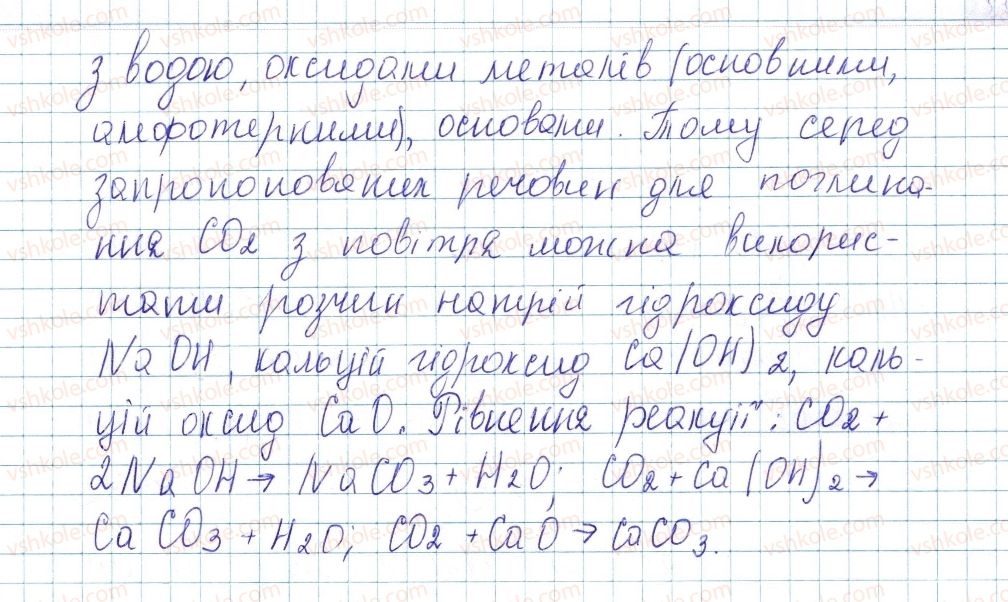 з водою, оксидами металів (основними,
амфотерними), основами. Тому серед
запропонованих речовин для поглина-
ння CO2 з повітря можна викорис-
тати розчин натрій гідроксиду
NaOH, кальцій гідроксид Ca(OH)2, каль-
цій оксид CaO. Рівнення реакції: CO2 +
2NaOH → NaCO3 + H2O; CO2 + Ca(OH)2 →
CaCO3 + H2O; CO2 + CaO → CaCO3.